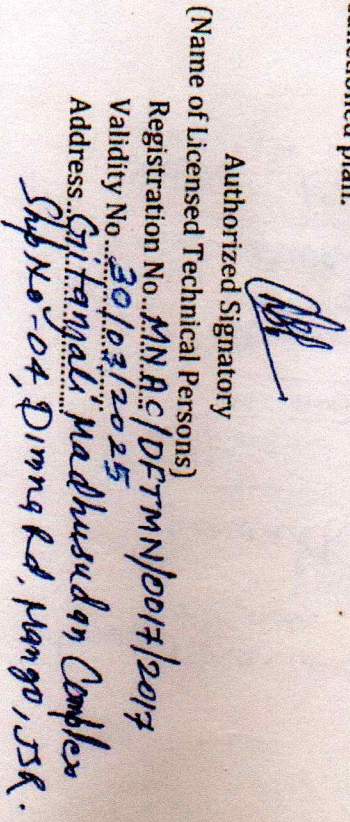 plan.
Authorized Signatory
(Name of Licensed Technical Persons)
Registration No...MNAC/DFTMN/0017/2017
Validity No...30/03/2025
Address...Gitanjali Madhusudan Complex
Shop No-04, Dimna Rd, Mango, JSR.